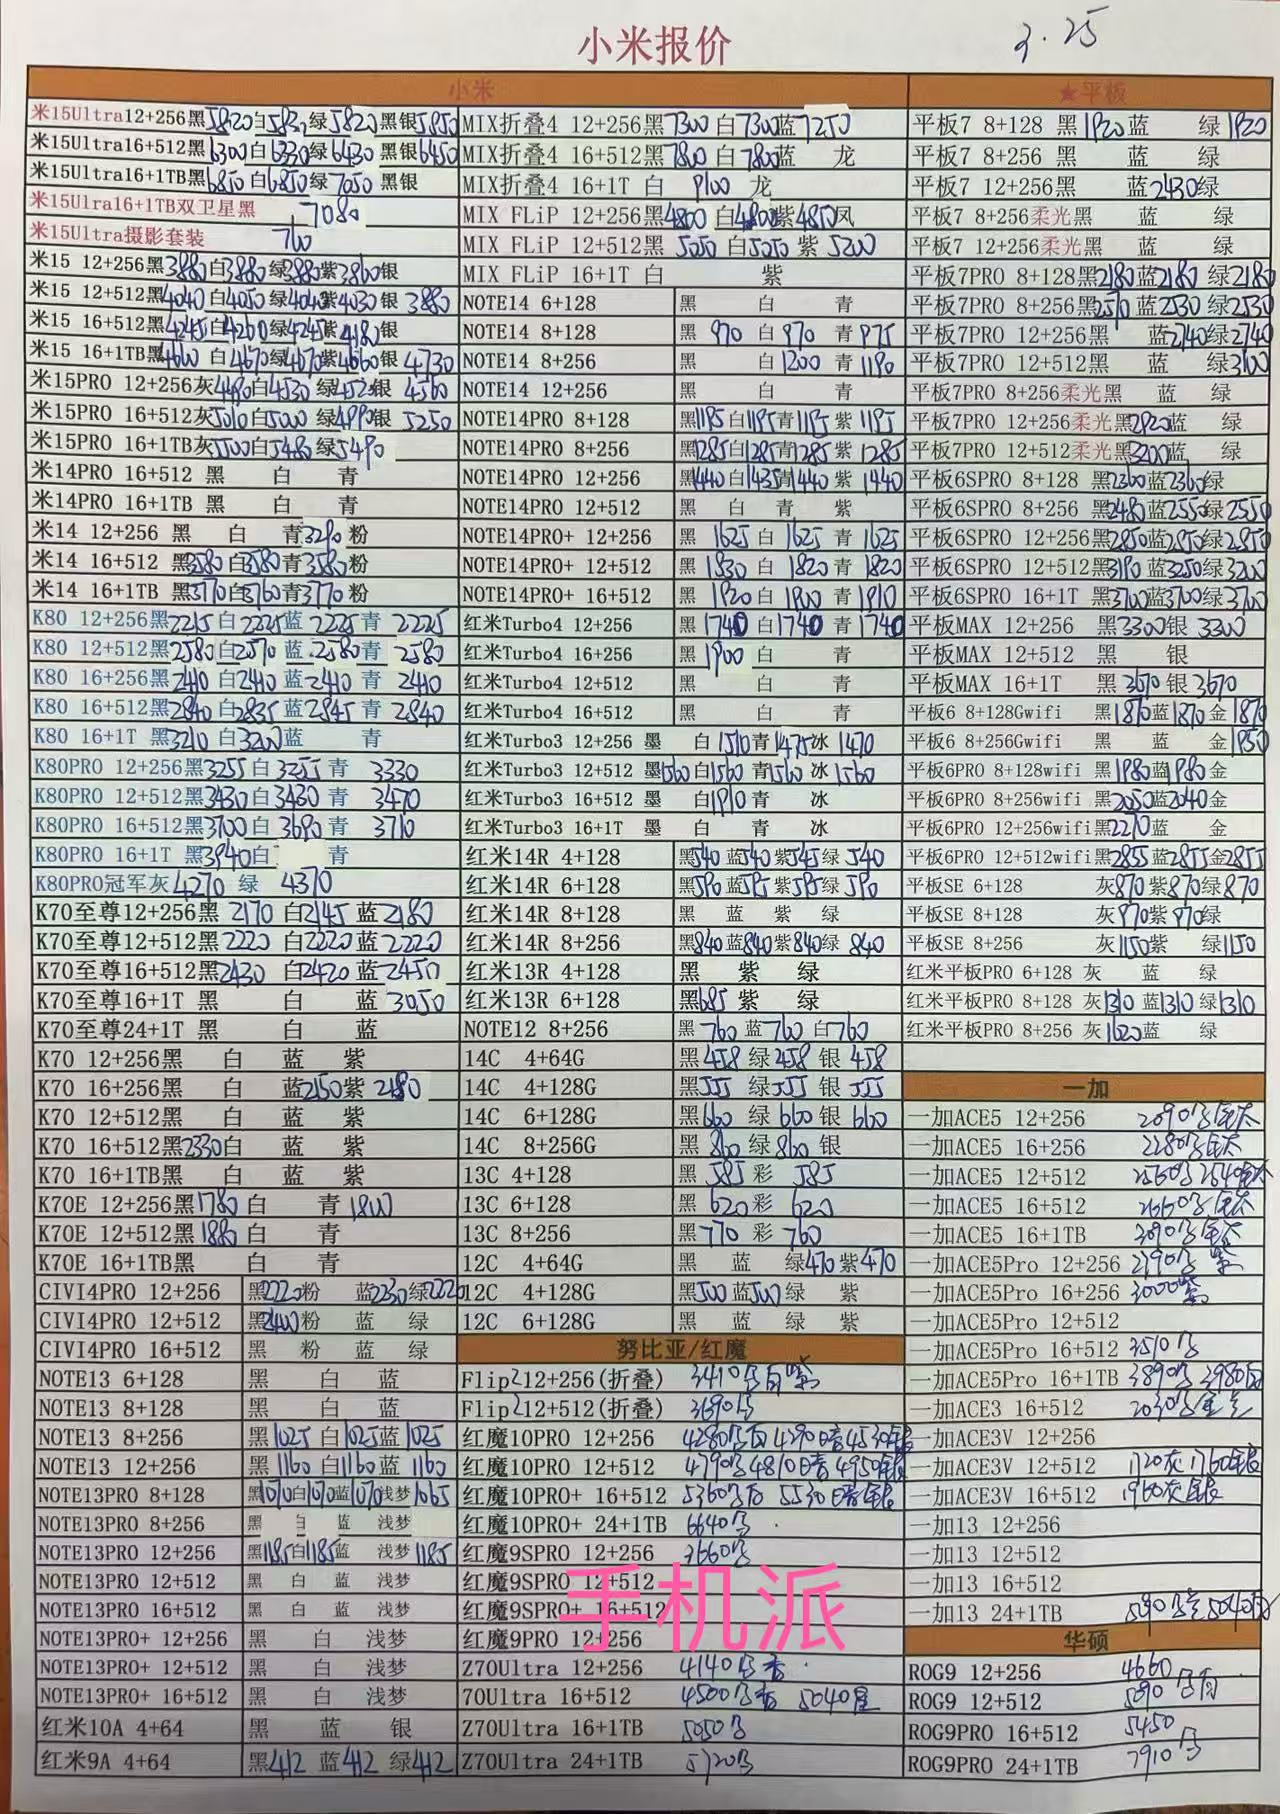 小米报价
3.25
小米
米15Ultra12+256黑5820白583绿5820黑银5850
米15Ultra16+512黑6300白6330绿6430黑银6450
米15Ultra16+1TB黑6850白6850绿7050黑银
米15Ulra16+1TB双卫星黑 7080
米15Ultra摄影套装 760
米15 12+256黑3880白3880绿3880紫3860银
米15 12+512黑4040白4050绿4040紫4030银 3880
米15 16+512黑4245白4260绿4245紫4180银
米15 16+1TB黑4660白4670绿4670紫4660银 4730
米15PRO 12+256灰4490白4530绿4520银 4560
米15PRO 16+512灰5010白5000绿4990银 5250
米15PRO 16+1TB灰5500白5480绿5490
米14PRO 16+512 黑 白 青
米14PRO 16+1TB 黑 白 青
米14 12+256 黑 白 青3290粉
米14 16+512 黑3580白3580青3580粉
米14 16+1TB 黑3770白3760青3770粉
K80 12+256黑2215白2225蓝2225青2225
K80 12+512黑2580白2570蓝2580青2580
K80 16+256黑2410白2410蓝2410青2410
K80 16+512黑2840白2835蓝2845青2840
K80 16+1T 黑3210白3200蓝 青
K80PRO 12+256黑3255白3255青3330
K80PRO 12+512黑3430白3430青3470
K80PRO 16+512黑3700白3690青3710
K80PRO 16+1T 黑3940白 青
K80PRO冠军灰4270 绿 4370
K70至尊12+256黑 2170 白2145蓝2180
K70至尊12+512黑2220 白2220蓝2220
K70至尊16+512黑2430 白2420蓝2450
K70至尊16+1T 黑 白 蓝3050
K70至尊24+1T 黑 白 蓝
K70 12+256黑 白 蓝 紫
K70 16+256黑 白 蓝2150紫2180
K70 12+512黑 白 蓝 紫
K70 16+512黑2330白 蓝 紫
K70 16+1TB黑 白 蓝 紫
K70E 12+256黑1780白 青1800
K70E 12+512黑1880白 青
K70E 16+1TB黑 白 青
CIVI4PRO 12+256 黑2220粉 蓝2230绿2220
CIVI4PRO 12+512 黑2400粉 蓝 绿
CIVI4PRO 16+512 黑 粉 蓝 绿
NOTE13 6+128 黑 白 蓝
NOTE13 8+128 黑 白 蓝
NOTE13 8+256 黑1025白1025蓝1025
NOTE13 12+256 黑1160白1160蓝1160
NOTE13PRO 8+128 黑1070白1070蓝1070浅梦1065
NOTE13PRO 8+256 黑 白 蓝 浅梦
NOTE13PRO 12+256 黑1185白1185蓝 浅梦1185
NOTE13PRO 12+512 黑 白 蓝 浅梦
NOTE13PRO 16+512 黑 白 蓝 浅梦
NOTE13PRO+ 12+256 黑 白 浅梦
NOTE13PRO+ 12+512 黑 白 浅梦
NOTE13PRO+ 16+512 黑 白 浅梦
红米10A 4+64 黑 蓝 银
红米9A 4+64 黑412蓝412绿412
MIX折叠4 12+256黑7300白7300蓝7250
MIX折叠4 16+512黑7800白7800蓝 龙
MIX折叠4 16+1T 白 9100 龙
MIX FLiP 12+256黑4800白4800紫4850凤
MIX FLiP 12+512黑5050白5050紫5200
MIX FLiP 16+1T 白 紫
NOTE14 6+128 黑 白 青
NOTE14 8+128 黑970白970青975
NOTE14 8+256 黑 白1200青1190
NOTE14 12+256 黑 白 青
NOTE14PRO 8+128 黑1195白1195青1195紫1195
NOTE14PRO 8+256 黑1285白1285青1285紫1285
NOTE14PRO 12+256 黑1440白1435青1440紫1440
NOTE14PRO 12+512 黑 白 青 紫
NOTE14PRO+ 12+256 黑1625白1625青1625
NOTE14PRO+ 12+512 黑1830白1820青1820
NOTE14PRO+ 16+512 黑1920白1900青1910
红米Turbo4 12+256 黑1740白1740青1740
红米Turbo4 16+256 黑1900白 青
红米Turbo4 12+512 黑 白 青
红米Turbo4 16+512 黑 白 青
红米Turbo3 12+256 墨 白1510青1475冰1470
红米Turbo3 12+512 墨1560白1560青1560冰1560
红米Turbo3 16+512 墨 白1910青 冰
红米Turbo3 16+1T 墨 白 青 冰
红米14R 4+128 黑540蓝540紫545绿540
红米14R 6+128 黑590蓝595紫595绿590
红米14R 8+128 黑 蓝 紫 绿
红米14R 8+256 黑840蓝840紫840绿840
红米13R 4+128 黑 紫 绿
红米13R 6+128 黑685紫 绿
NOTE12 8+256 黑760蓝760白760
14C 4+64G 黑458绿458银458
14C 4+128G 黑555绿555银555
14C 6+128G 黑660绿660银660
14C 8+256G 黑860绿860银
13C 4+128 黑585彩585
13C 6+128 黑620彩620
13C 8+256 黑770彩760
12C 4+64G 黑 蓝 绿470紫470
12C 4+128G 黑500蓝500绿 紫
12C 6+128G 黑 蓝 绿 紫
努比亚/红魔
Flip212+256(折叠) 3410
Flip212+512(折叠) 3690
红魔10PRO 12+256 4280 4290暗4530
红魔10PRO 12+512 4790 4810暗4950
红魔10PRO+ 16+512 5360 5530暗
红魔10PRO+ 24+1TB 6640
红魔9SPRO 12+256 3660
红魔9SPRO 12+512
红魔9SPRO+ 16+512
红魔9PRO 12+256
Z70Ultra 12+256 4140
70Ultra 16+512 4500 5040星
Z70Ultra 16+1TB 5050
Z70Ultra 24+1TB 5720
★平板
平板7 8+128 黑1920蓝 绿1920
平板7 8+256 黑 蓝 绿
平板7 12+256黑 蓝2430绿
平板7 8+256柔光黑 蓝 绿
平板7 12+256柔光黑 蓝 绿
平板7PRO 8+128黑2180蓝2180绿2180
平板7PRO 8+256黑2570蓝2530绿2530
平板7PRO 12+256黑 蓝2740绿2740
平板7PRO 12+512黑 蓝 绿3100
平板7PRO 8+256柔光黑 蓝 绿
平板7PRO 12+256柔光黑2920蓝 绿
平板7PRO 12+512柔光黑3200蓝 绿
平板6SPRO 8+128 黑2360蓝2360绿
平板6SPRO 8+256 黑2480蓝2550绿2550
平板6SPRO 12+256黑2850蓝2850绿2850
平板6SPRO 12+512黑3190蓝3250绿3200
平板6SPRO 16+1T 黑3700蓝3700绿3700
平板MAX 12+256 黑3300银3300
平板MAX 12+512 黑 银
平板MAX 16+1T 黑3670银3670
平板6 8+128Gwifi 黑1870蓝1870金1870
平板6 8+256Gwifi 黑 蓝 金1950
平板6PRO 8+128wifi 黑1980蓝1980金
平板6PRO 8+256wifi 黑2050蓝2040金
平板6PRO 12+256wifi黑2270蓝 金
平板6PRO 12+512wifi黑2855蓝2855金2855
平板SE 6+128 灰870紫870绿870
平板SE 8+128 灰970紫970绿
平板SE 8+256 灰1150紫 绿1150
红米平板PRO 6+128 灰 蓝 绿
红米平板PRO 8+128 灰1310蓝1310绿1310
红米平板PRO 8+256 灰1620蓝 绿
一加
一加ACE5 12+256 2090
一加ACE5 16+256 2280
一加ACE5 12+512 2560 2540
一加ACE5 16+512
一加ACE5 16+1TB 3090
一加ACE5Pro 12+256 2790 紫
一加ACE5Pro 16+256 3000紫
一加ACE5Pro 12+512
一加ACE5Pro 16+512 3510
一加ACE5Pro 16+1TB 3890 3980
一加ACE3 16+512 2030
一加ACE3V 12+256
一加ACE3V 12+512 1720灰1760银
一加ACE3V 16+512 1960灰银
一加13 12+256
一加13 12+512
一加13 16+512
一加13 24+1TB 5090 5040
华硕
ROG9 12+256 4660
ROG9 12+512 5090
ROG9PRO 16+512 5450
ROG9PRO 24+1TB 7910
手机派